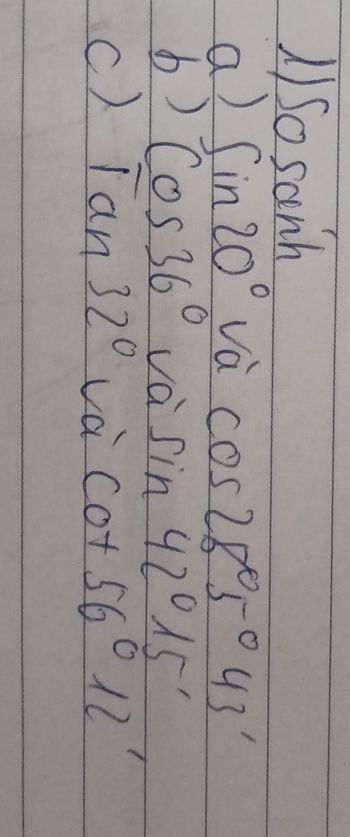 1) So sánh
a) Sin 20° và cos 25° 43'
b) Cos 36° và sin 42° 15'
c) Tan 32° và cot 56° 12'